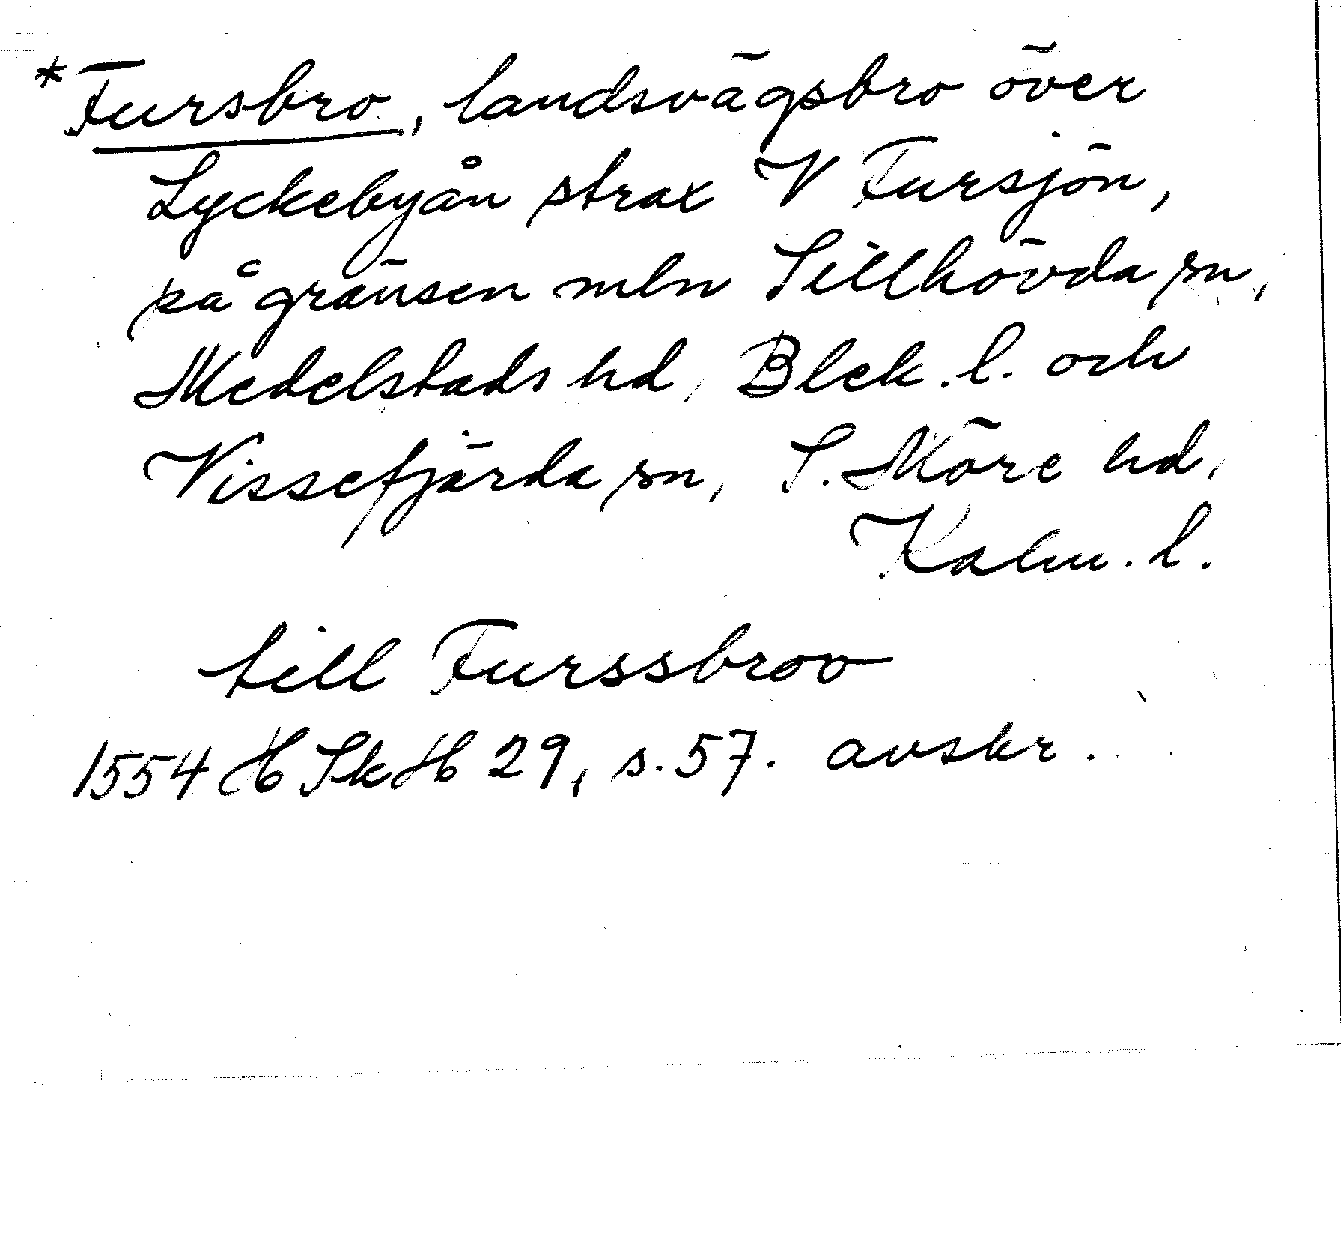 *Fursbro, landsvägsbro över
Lyckebyån strax V Fursjön,
på gränsen mln Sillhövda sn,
Medelstads hd, Blek. l. och
Vissefjärda sn, S. Möre hd,
Kalm. l.
till Furssbroo
1554 HSkH 29, s. 57. avskr.